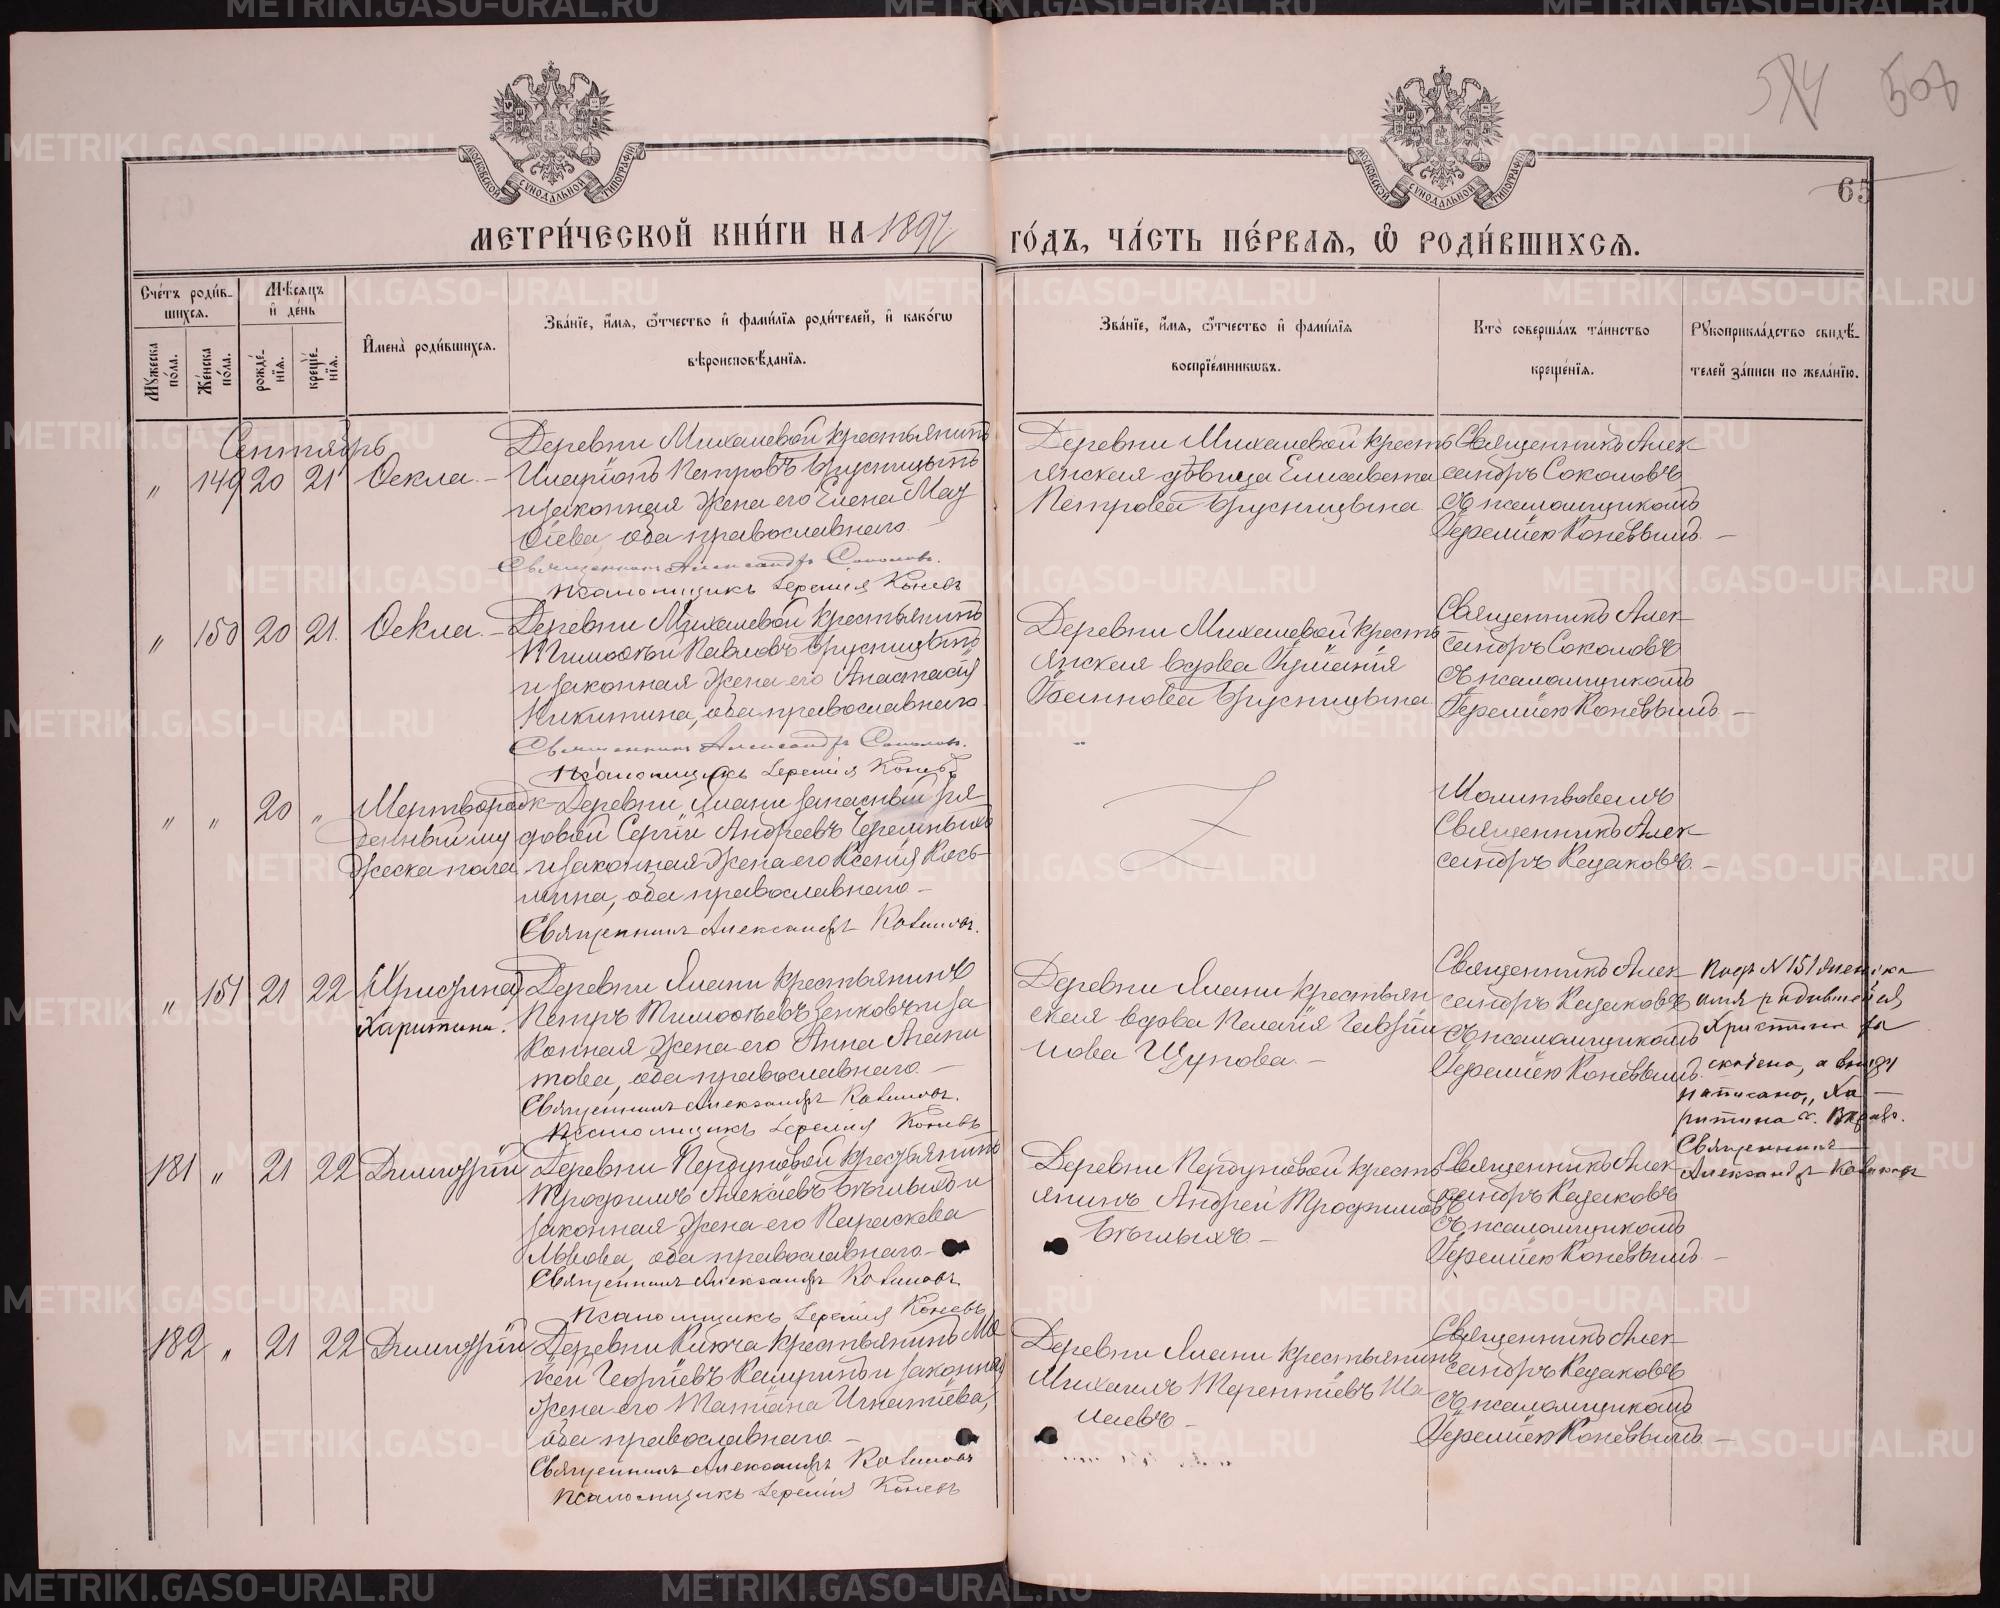 МОСКОВСКОЙ СУНОДАЛЬНОЙ ТИПОГРАФІИ
МОСКОВСКОЙ СУНОДАЛЬНОЙ ТИПОГРАФІИ
65
МЕТРИ́ЧЕСКОЙ КНИ́ГИ НА 1897
ГО́ДЪ, ЧА́СТЬ ПЕ́РВАѦ, Ѡ҆ РОДИ́ВШИХСѦ.
Сче́тъ роди́в-
шихсѧ.
Мꙋ́жеска по́ла.
Же́нска по́ла.
Мѣ́сѧцъ и҆ де́нь
рожде́-нїѧ.
креще́-нїѧ.
И҆мена̀ роди́вшихсѧ.
Зва́нїе, и҆́мѧ, ѻ҆́тчество и҆ фами́лїѧ роди́телей, и҆ како́гѡ
вѣроисповѣ́данїѧ.
Зва́нїе, и҆́мѧ, ѻ҆́тчество и҆ фами́лїѧ
воспрїе́мникѡвъ.
Кто̀ соверша́лъ та́инство
креще́нїѧ.
Рꙋкоприкла́дство свидѣ́-
телей за́писи по жела́нїю.
Сентябрь
" 149 20 21 Ѳекла. –
Деревни Михалевой крестьянинъ
Иларіонъ Петровъ Брусницынъ
и законная жена его Елена Мат
ѳіева, оба православнаго –
Священникъ Александръ Соколовъ.
Псаломщикъ Іеремія Коневъ
Деревни Михалевой кресть
янская дѣвица Елисавета
Петрова Брусницына
Священникъ Алек
сандръ Соколовъ
съ псаломщикомъ
Іереміею Коневымъ –
" 150 20 21. Ѳекла. –
Деревни Михалевой крестьянинъ
Тимоѳей Павловъ Брусницынъ
и законная жена его Анастасія
Никитина, оба православнаго
Священникъ Александръ Соколовъ.
Псаломщикъ Іеремія Коневъ
Деревни Михалевой кресть
янская вдова Іуліанія
Іоаннова Брусницына
Священникъ Алек
сандръ Соколовъ
съ псаломщикомъ
Іереміею Коневымъ –
" " 20 " Мертворож
денный му
жеска пола
Деревни Ялани запасный ря
довой Сергій Андреевъ Черемныхъ
и законная жена его Ксенія Кось
мина, оба православнаго –
Священникъ Александръ Козаковъ.
Молитвовалъ
Священникъ Алек
сандръ Казаковъ –
" 151 21 22 (Христина)
Харитина.
Деревни Ялани крестьянинъ
Петръ Тимоѳеевъ Зенковъ и за
конная жена его Анна Агапи
това, оба православнаго –
Священникъ Александръ Козаковъ.
Псаломщикъ Іеремія Коневъ
Деревни Ялани крестьян
ская вдова Пелагія Гаврии
лова Щупова –
Священникъ Алек
сандръ Казаковъ
съ псаломщикомъ
Іереміею Коневымъ.
Подъ № 151 женска
имя родившейся
Христина за
скоблено, а
написано „Ха
ритина“.
Священникъ
Александръ Козаковъ
181 " 21 22 Димитрій
Деревни Пердуновой крестьянинъ
Трофимъ Алексѣевъ Бѣглыхъ и
законная жена его Параскева
Львова, оба православнаго –
Священникъ Александръ Козаковъ
Псаломщикъ Іеремія Коневъ
Деревни Пердуновой кресть
янинъ Андрей Трофимовъ
Бѣглыхъ –
Священникъ Алек
сандръ Казаковъ
съ псаломщикомъ
Іереміею Коневымъ –
182 " 21 22 Димитрій
Деревни Ключа крестьянинъ Мо
исей Георгіевъ Кашринъ и законная
жена его Татіана Игнатіева,
оба православнаго –
Священникъ Александръ Козаковъ
Псаломщикъ Іеремія Коневъ
Деревни Ялани крестьянинъ
Михаилъ Терентіевъ Ша
лаевъ –
Священникъ Алек
сандръ Казаковъ
съ псаломщикомъ
Іереміею Коневымъ –
METRIKI.GASO-URAL.RU